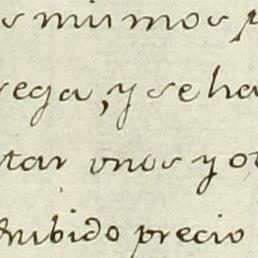 s mismos p
rega, y se ha
tar unos y ot
hibido precio